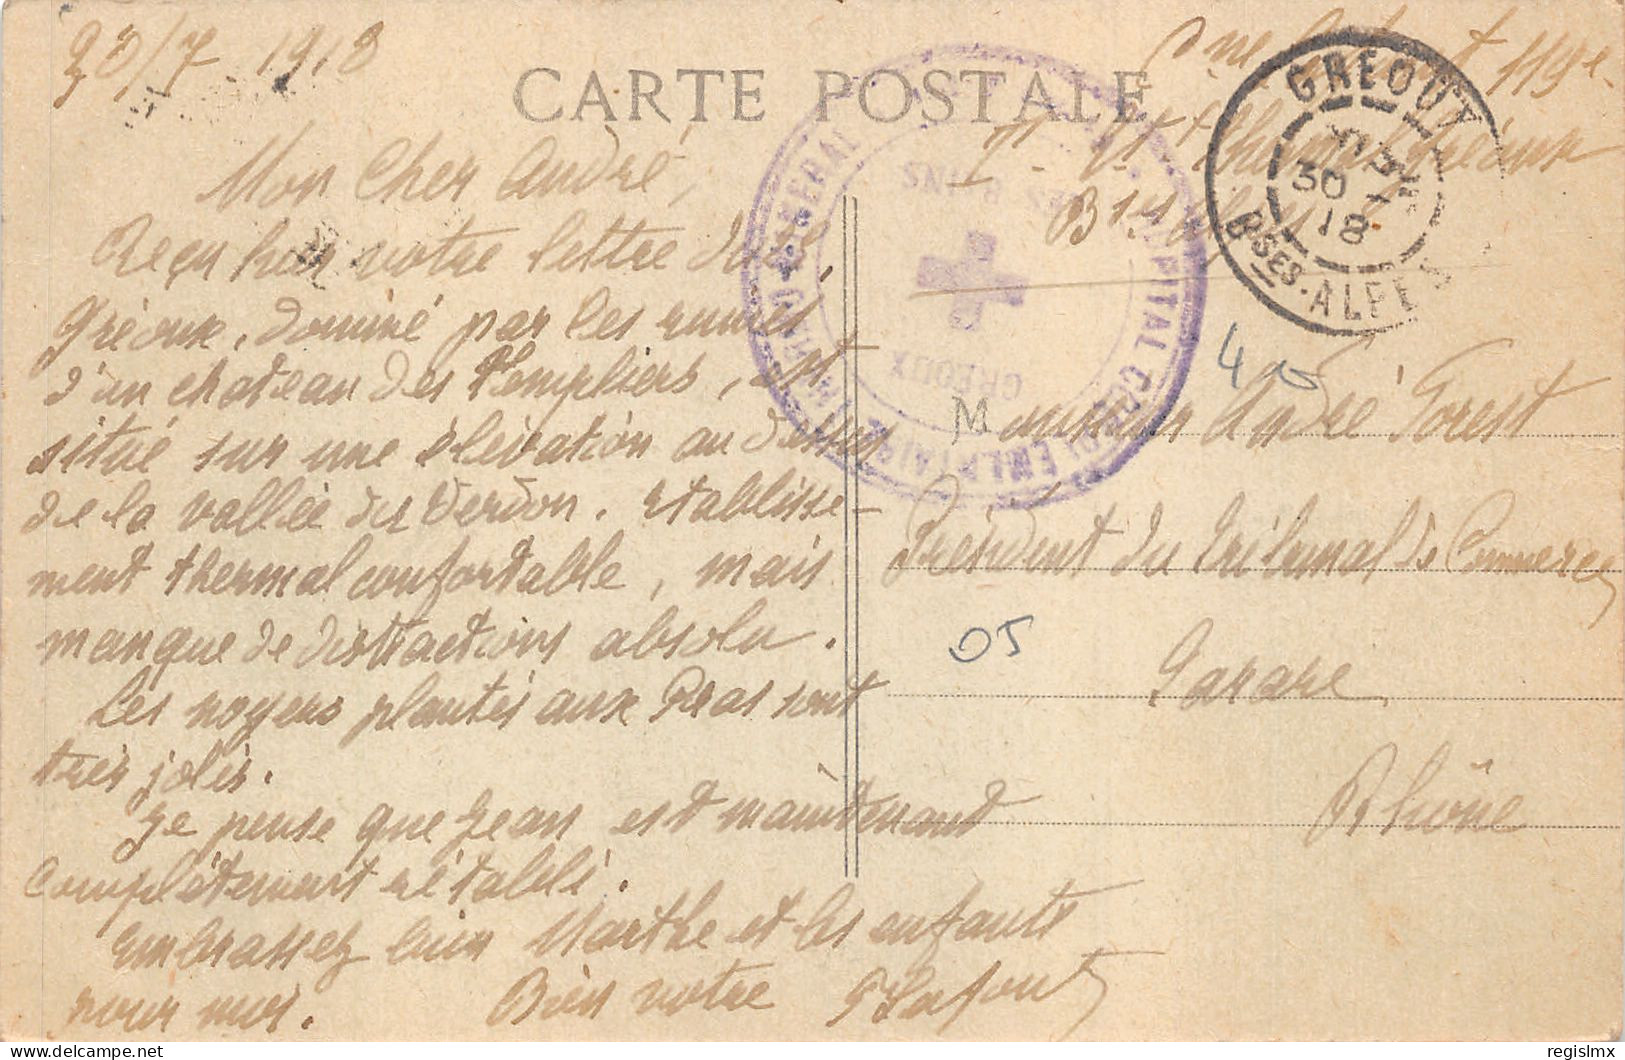 30/7 1918
CARTE POSTALE
Cne Lafont 119e
Bses Alpes
GREOUX
30
18
BSES-ALPES
HOPITAL COMPLEMENTAIRE
GENERAL
LES BAINS
GREOUX
Mon cher André,
Reçu hier votre lettre du
Gréoux, dominé par les ruines
d'un chateau des Templiers, est
situé sur une élévation au dessus
de la vallée du Verdon. Etablisse-
ment thermal confortable, mais
manque de distractions absolu.
Les noyers plantés aux Pras sont
très jolis.
Je pense que Jean est maintenant
complètement rétabli.
Embrassez bien Marthe et les enfants
pour moi. Bien votre
Lafont
40
M Monsieur André Forest
Président du Tribunal de Commerce
05
Tarare
Rhône
delcampe.net
regislmx